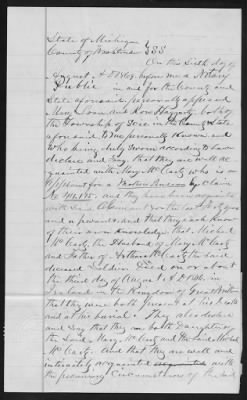 State of Michigan
County of        } SS
On this Sixth day of
August A.D. 1869. before me a Notary
Public in and for the County and
State aforesaid, personally appeared
Mary        and        Hagerty both of
the Township of        in the County & State
aforesaid to me personally known and
who being duly sworn according to law
declare and say, that they are well ac
quainted with Mary McCarty who is an
applicant for a        Pension by claim
No
and a pensioner and that they each know
of their own knowledge, that Michael
McCarty, the Husband of Mary McCarty
and Father of        McCarty the said
deceased soldier Died on or about
the third day of August A.D.
Ireland in the Kingdom of Great Britain
that they were both present at his death
and at his burial. They also declare
and say that they are both Daughters of
the said Mary McCarty and the said Michael
McCarty. And that they are well and
intimately acquainted with
the pecuniary circumstances of the said